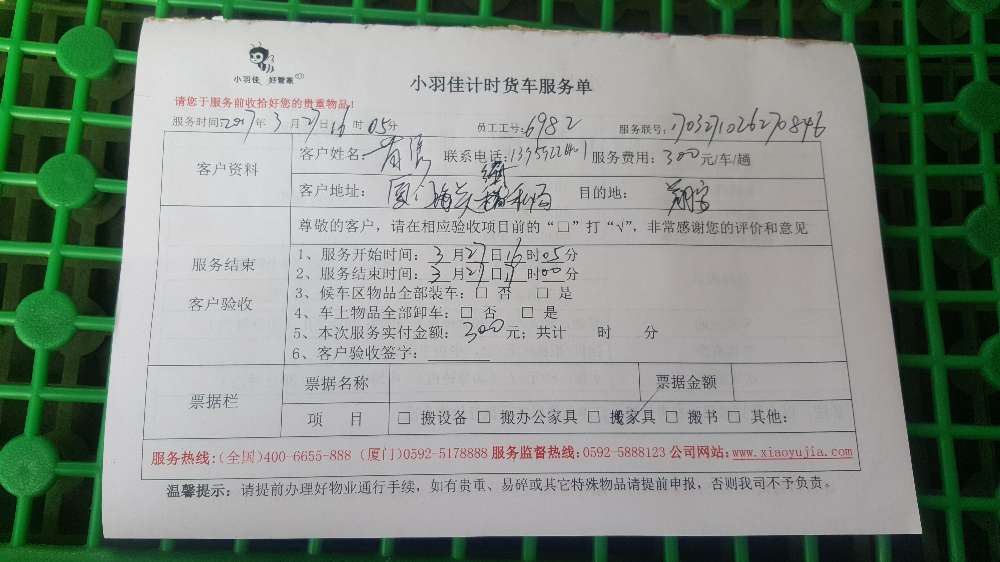 小羽佳 好管家
小羽佳计时货车服务单
请您于服务前收拾好您的贵重物品!
服务时间:2017年3月27日16时05分 员工工号:6982 服务联号:1703271026270846
客户资料
客户姓名: 联系电话: 服务费用:300元/车/趟
客户地址: 目的地:
尊敬的客户,请在相应验收项目前的“□”打“√”,非常感谢您的评价和意见
服务结束
客户验收
1、服务开始时间:3月27日16时05分
2、服务结束时间:3月27日17时00分
3、候车区物品全部装车:□ 否 □ 是
4、车上物品全部卸车:□ 否 □ 是
5、本次服务实付金额:300元;共计 时 分
6、客户验收签字:
票据栏
票据名称 票据金额
项 目 □ 搬设备 □ 搬办公家具 □ 搬家具 □ 搬书 □ 其他:
服务热线:(全国)400-6655-888 (厦门)0592-5178888 服务监督热线:0592-5888123 公司网站:www.xiaoyujia.com
温馨提示:请提前办理好物业通行手续,如有贵重、易碎或其它特殊物品请提前申报,否则我司不予负责。